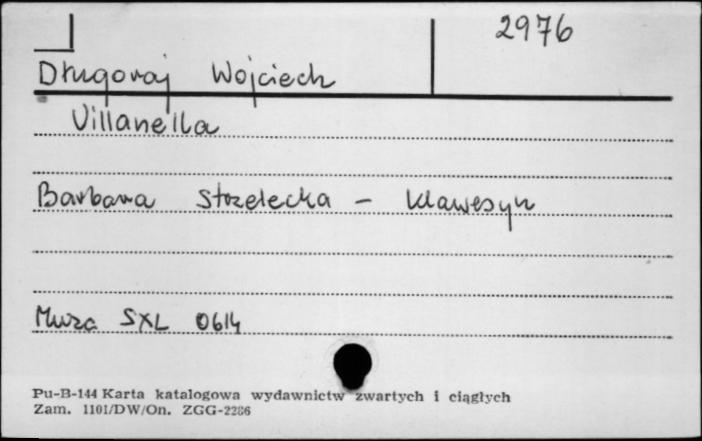 2976
Długoraj Wojciech
Villanella
Barbara Strzelecka - klawesyn
Muza SXL 0614
Pu-B-144 Karta katalogowa wydawnictw zwartych i ciągłych
Zam. 1101/DW/On. ZGG-2286